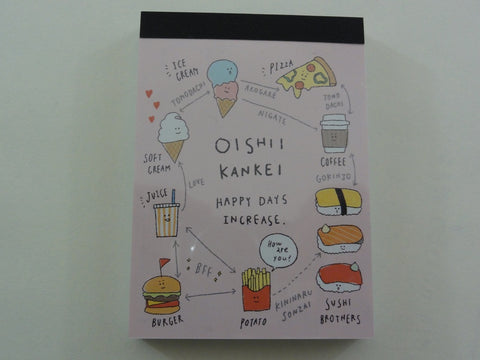 ICE
CREAM
PIZZA
TOMODACHI
AKOGARE
NIGATE
TOMO
DACHI
SOFT
CREAM
OISHII
KANKEI
HAPPY DAYS
INCREASE.
COFFEE
GOKINJO
LOVE
JUICE
BFF
HOW ARE
YOU?
BURGER
POTATO
KININARU
SONZAI
SUSHI
BROTHERS